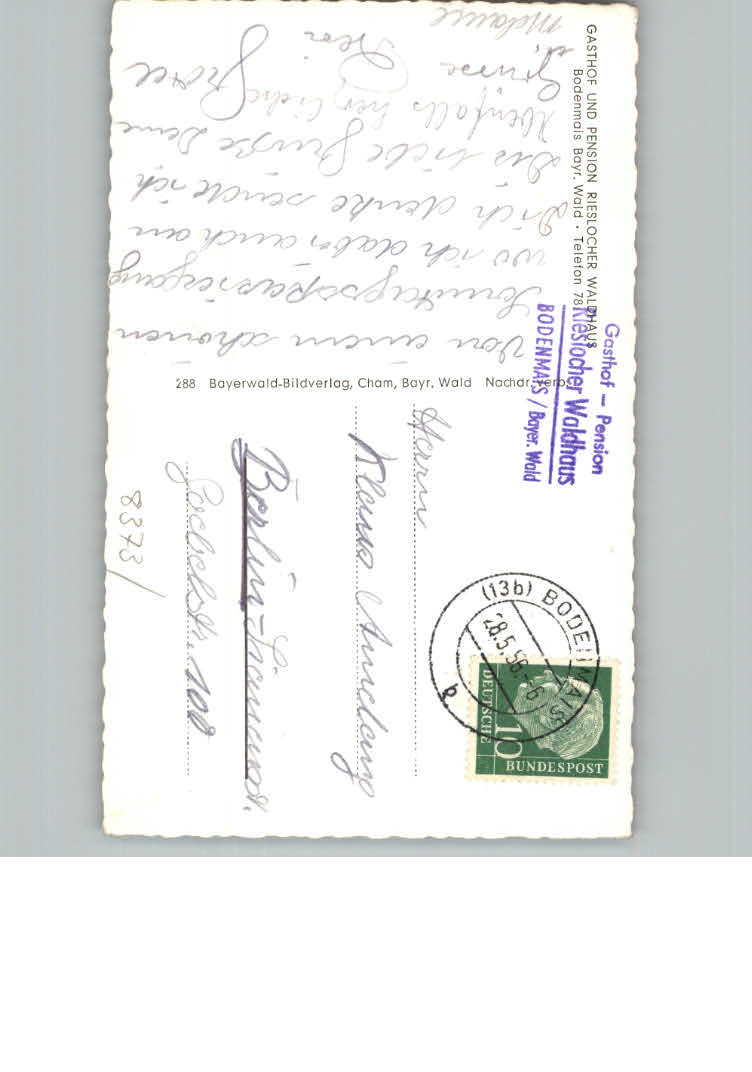 GASTHOF UND PENSION RIESLOCHER WALDHAUS
Bodenmais Bayr. Wald · Telefon 78
Von einem schönen
Sonntagsspaziergang
wo ich dabei auch an
Dich denke sende ich
Die liebe Grüße Deine
Ebenfalls herzliche
Grüsse
288 Bayerwald-Bildverlag, Cham, Bayr. Wald Nachdr. verb.
Gasthof - Pension
Rieslocher Waldhaus
BODENMAIS / Bayer. Wald
(13b) BODENMAIS
28.5.56.-6
b
DEUTSCHE
10
BUNDESPOST
Herrn
Klaus
Berlin-
108
8373/